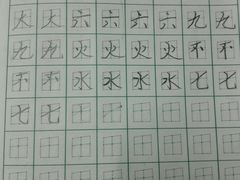 大大六六六六九九
九九火火火火不不
不不水水水水七七
七七十